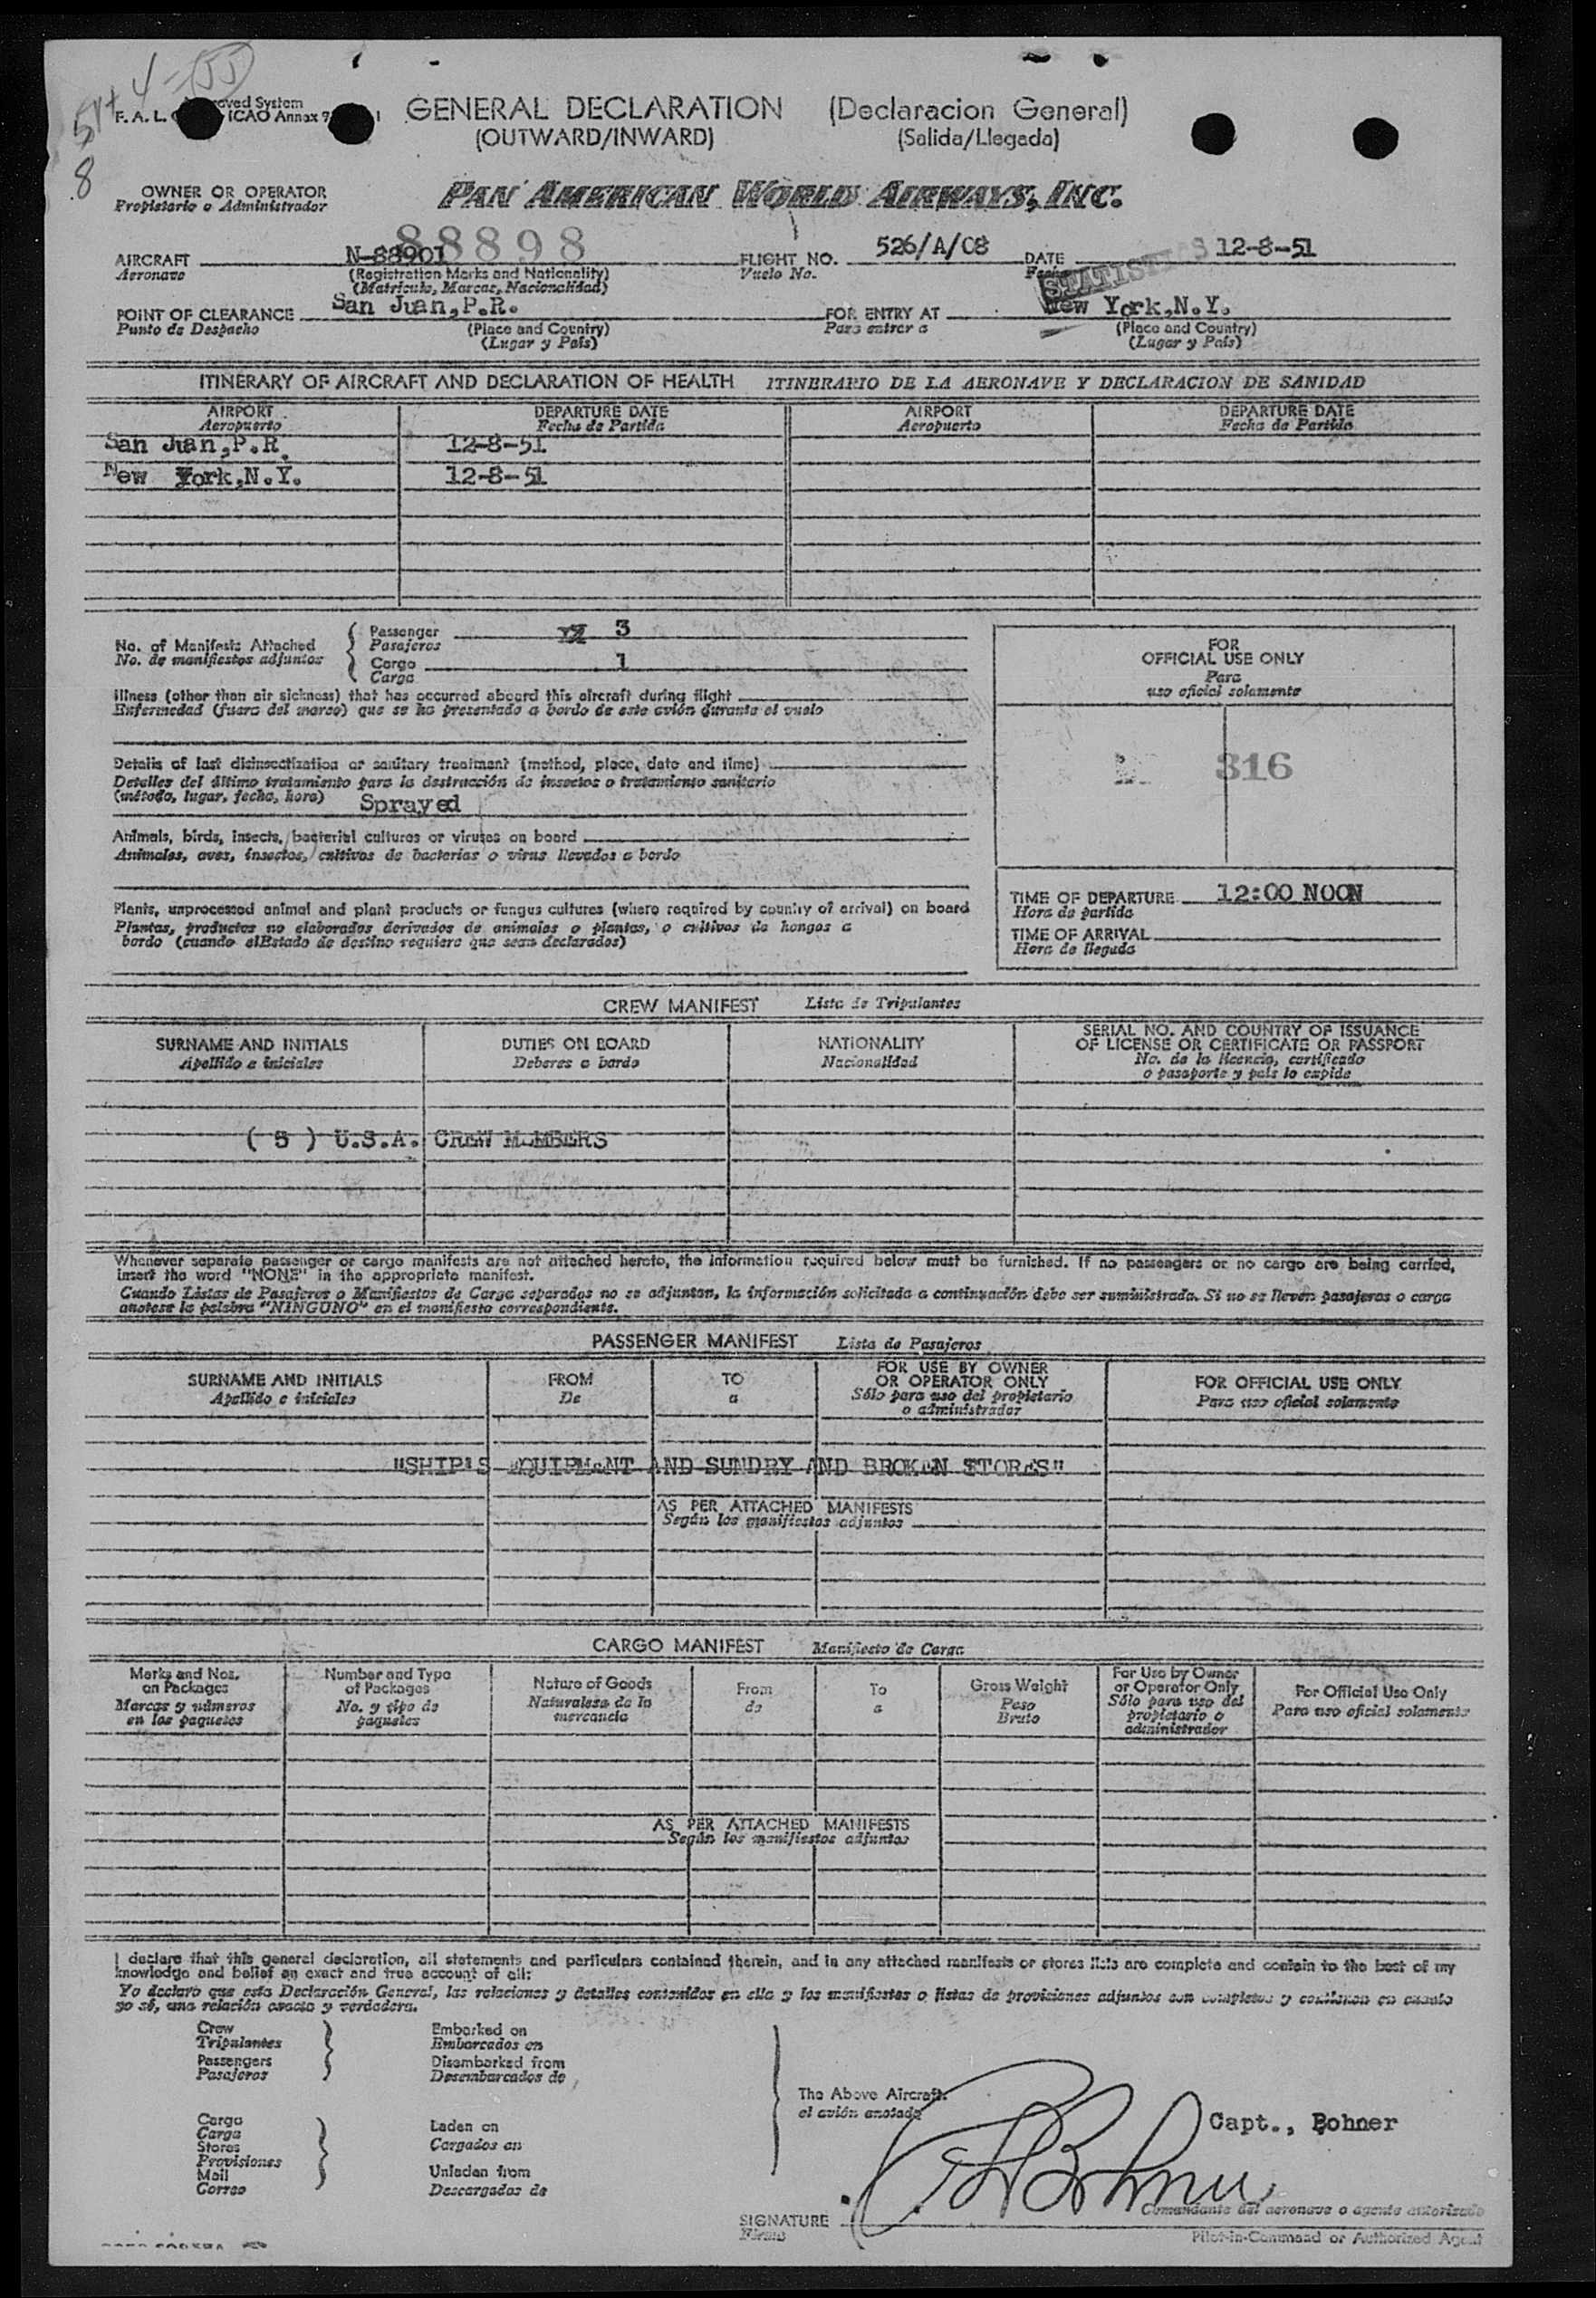 51+4=55
8
F. A. L. ICAO Annex 9
GENERAL DECLARATION (Declaracion General)
(OUTWARD/INWARD) (Salida/Llegada)
OWNER OR OPERATOR PAN AMERICAN WORLD AIRWAYS, INC.
Propietario o Administrador
88898
AIRCRAFT N-88901 FLIGHT NO. 526/A/08 DATE 12-8-51
Aeronave (Registration Marks and Nationality) Vuelo No. Fecha
STATISTICS
(Matricula, Marcas, Nacionalidad)
POINT OF CLEARANCE San Juan,P.R. FOR ENTRY AT New York,N.Y.
Punto de Despacho (Place and Country) Para entrar a (Place and Country)
(Lugar y País) (Lugar y País)
ITINERARY OF AIRCRAFT AND DECLARATION OF HEALTH ITINERARIO DE LA AERONAVE Y DECLARACION DE SANIDAD
AIRPORT DEPARTURE DATE AIRPORT DEPARTURE DATE
Aeropuerto Fecha de Partida Aeropuerto Fecha de Partida
San Juan,P.R. 12-8-51
New York,N.Y. 12-8-51
No. of Manifests Attached Passenger 3
No. de manifiestos adjuntos Pasajeros
Cargo 1
Carga
FOR
OFFICIAL USE ONLY
Para
uso oficial solamente
316
Illness (other than air sickness) that has occurred aboard this aircraft during flight
Enfermedad (fuera del mareo) que se ha presentado a bordo de este avión durante el vuelo
Details of last disinsectization or sanitary treatment (method, place, date and time)
Detalles del último tratamiento para la destrucción de insectos o tratamiento sanitario
(método, lugar, fecha, hora) Sprayed
Animals, birds, insects, bacterial cultures or viruses on board
Animales, aves, insectos, cultivos de bacterias o virus llevados a bordo
Plants, unprocessed animal and plant products or fungus cultures (where required by country of arrival) on board
Plantas, productos no elaborados derivados de animales o plantas, o cultivos de hongos a
bordo (cuando elEstado de destino requiere que sean declarados)
TIME OF DEPARTURE 12:00 NOON
Hora de partida
TIME OF ARRIVAL
Hora de llegada
CREW MANIFEST Lista de Tripulantes
SURNAME AND INITIALS DUTIES ON BOARD NATIONALITY SERIAL NO. AND COUNTRY OF ISSUANCE
OF LICENSE OR CERTIFICATE OR PASSPORT
Apellido e iniciales Deberes a bordo Nacionalidad No. de la licencia, certificado
o pasaporte y país lo expide
( 5 ) U.S.A. CREW MEMBERS
Whenever separate passenger or cargo manifests are not attached hereto, the information required below must be furnished. If no passengers or no cargo are being carried,
insert the word "NONE" in the appropriate manifest.
Cuando Listas de Pasajeros o Manifiestos de Carga separados no se adjuntan, la información solicitada a continuación debe ser suministrada. Si no se lleven pasajeros o carga
anotese la palabra "NINGUNO" en el manifiesto correspondiente.
PASSENGER MANIFEST Lista de Pasajeros
SURNAME AND INITIALS FROM TO FOR USE BY OWNER OR OPERATOR ONLY FOR OFFICIAL USE ONLY
Apellido e iniciales De a Sólo para uso del propietario o administrador Para uso oficial solamente
"SHIP'S EQUIPMENT AND SUNDRY AND BROKEN STORES"
AS PER ATTACHED MANIFESTS
Según los manifiestos adjuntos
CARGO MANIFEST Manifiesto de Carga
Marks and Nos. on Packages Number and Type of Packages Nature of Goods From To Gross Weight For Use by Owner or Operator Only For Official Use Only
Marcas y números en los paquetes No. y tipo de paquetes Naturaleza de la mercancia de a Peso Bruto Sólo para uso del propietario o administrador Para uso oficial solamente
AS PER ATTACHED MANIFESTS
Según los manifiestos adjuntos
I declare that this general declaration, all statements and particulars contained therein, and in any attached manifests or stores lists are complete and contain to the best of my
knowledge and belief an exact and true account of all:
Yo declaro que esta Declaración General, las relaciones y detalles contenidos en ella y los manifiestos o listas de provisiones adjuntos son completos y contienen en cuanto
yo sé, una relación exacta y verdadera.
Crew Embarked on
Tripulantes Embarcados en
Passengers Disembarked from
Pasajeros Desembarcados de
The Above Aircraft.
el avión anotado
Cargo Laden on
Carga Cargados en
Stores
Provisiones
Mail Unladen from
Correo Descargados de
Capt., Bohner
Bohner
Comandante del aeronave o agente autorizado
SIGNATURE
Firma
Pilot-in-Command or Authorized Agent